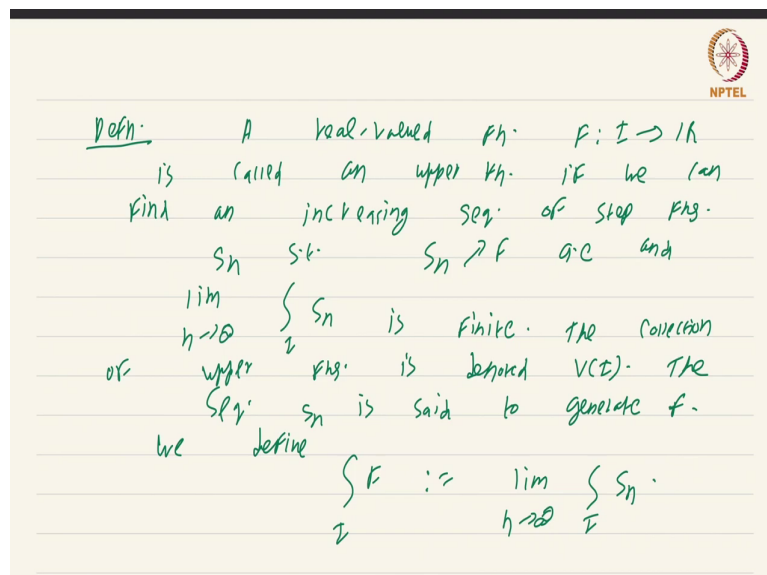 NPTEL
Defn. A real-valued fn. F: I → IR
is called an upper fn. if we can
find an increasing seq. of step fns.
Sn s.t. Sn ↗ F a.e and
lim n→∞ ∫_I Sn is finite. The collection
of upper fns. is denoted U(I). The
seq. Sn is said to generate f.
We define
∫_I F := lim n→∞ ∫_I Sn.